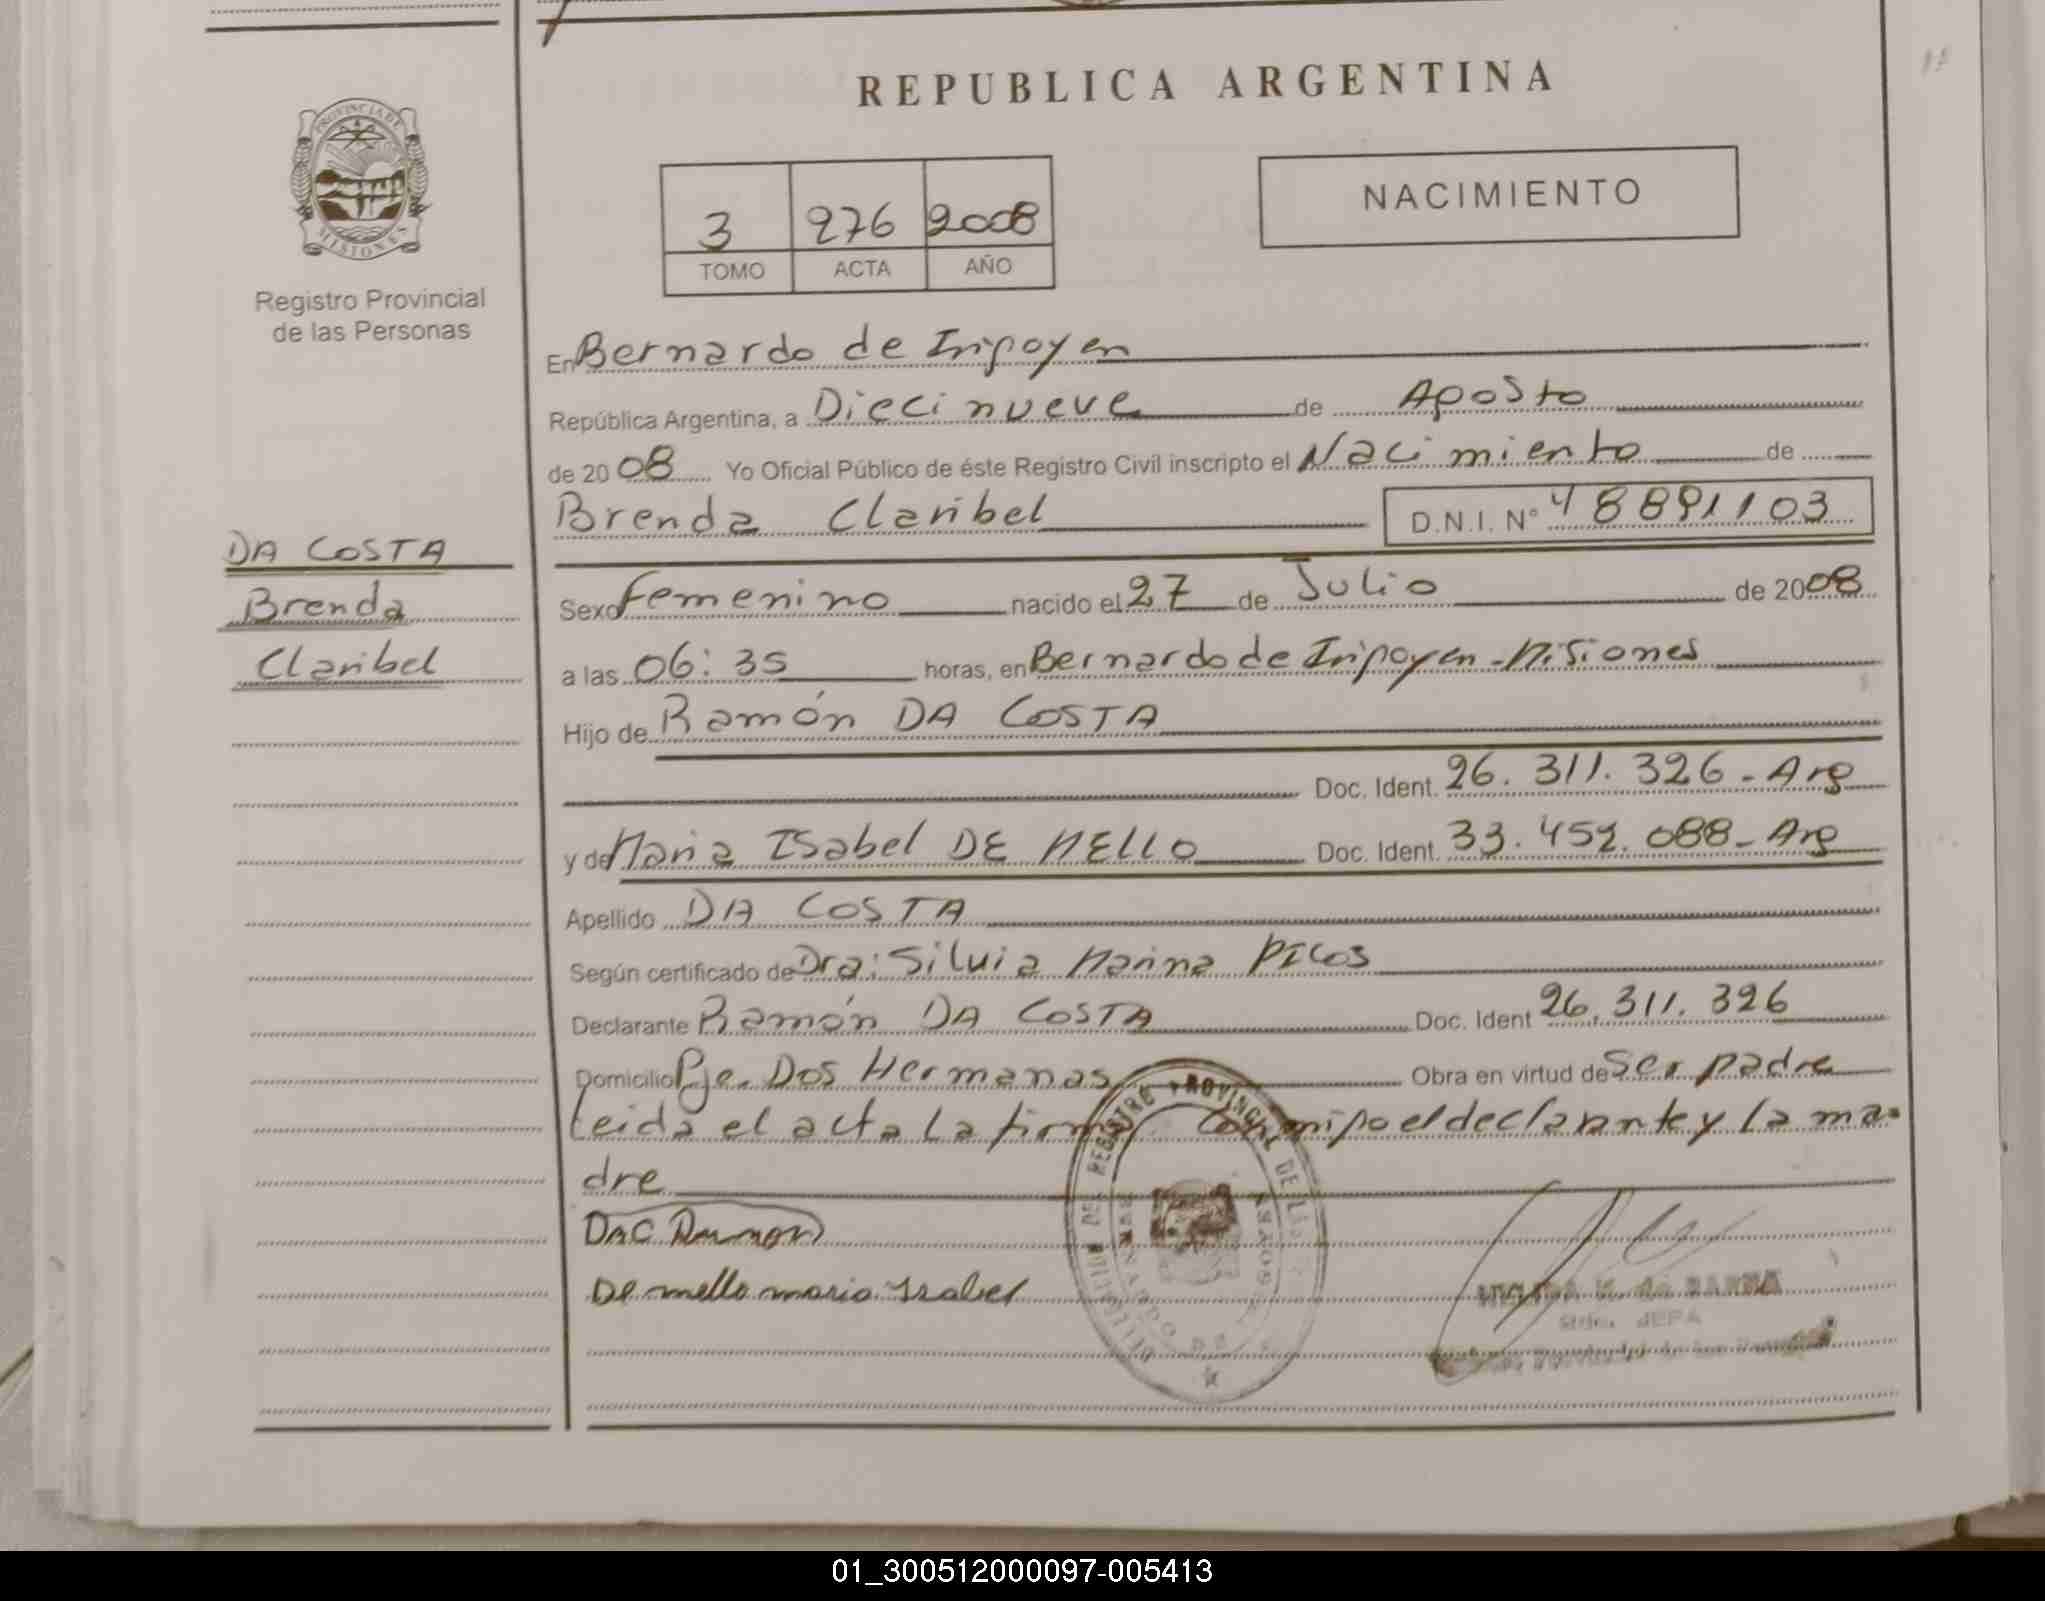 REPUBLICA ARGENTINA
PROVINCIA DE MISIONES
Registro Provincial
de las Personas
3 276 2008
TOMO ACTA AÑO
NACIMIENTO
En Bernardo de Irigoyen
República Argentina, a Diecinueve de Agosto
de 2008 Yo Oficial Público de éste Registro Civil inscripto el Nacimiento de
Brenda Claribel D.N.I. Nº 48891103
DA COSTA
Brenda
Claribel
Sexo Femenino nacido el 27 de Julio de 2008
a las 06:35 horas, en Bernardo de Irigoyen - Misiones
Hijo de Ramón DA COSTA
Doc. Ident. 26.311.326 - Arg
y de Maria Isabel DE MELLO Doc. Ident. 33.452.088 - Arg
Apellido DA COSTA
Según certificado de Dra: Silvia Marina PICOS
Declarante Ramón DA COSTA Doc. Ident 26.311.326
Domicilio Pje. Dos Hermanas Obra en virtud de Ser padre
Leida el acta la firma Conmigo el declarante y la ma-
dre
Dac Ramon
De mello maria Isabel
01_300512000097-005413